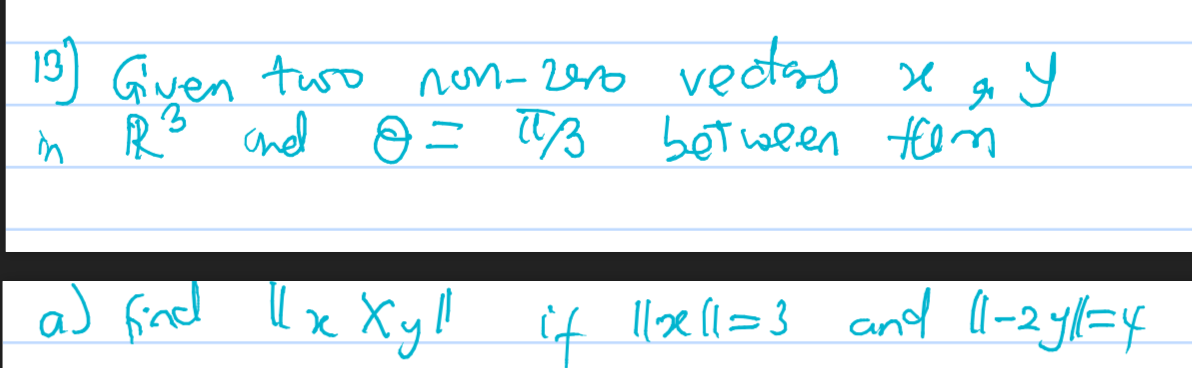 13) Given two non-zero vectors x, y
in ℝ³ and θ = π/3 between them
a) find ||x × y|| if ||x||=3 and ||-2y||=4